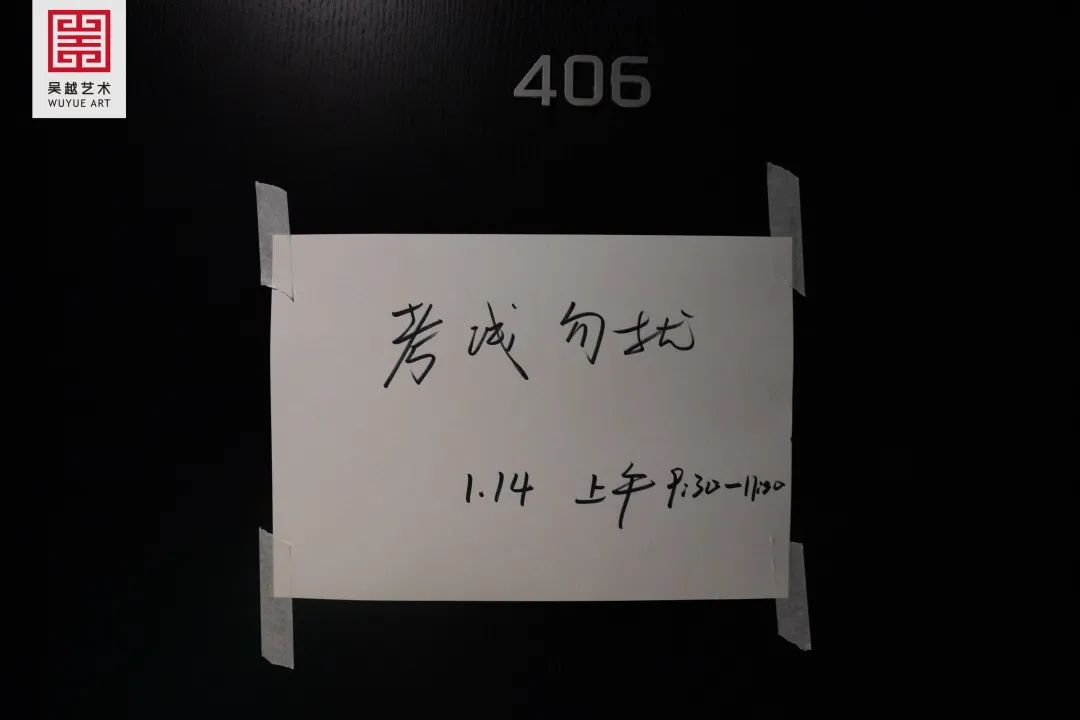 吴越艺术
WUYUE ART
406
考试勿扰
1.14 上午 9:30-11:00